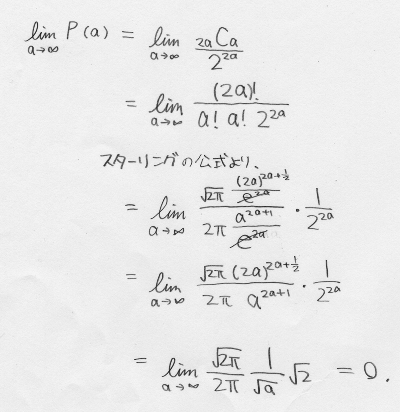 lim_{a→∞} P(a) = lim_{a→∞} {}_{2a}C_a / 2^{2a}
= lim_{a→∞} (2a)! / (a! a! 2^{2a})
スターリングの公式より、
= lim_{a→∞} (√2π (2a)^{2a+1/2} / e^{2a}) / (2π a^{2a+1} / e^{2a}) · 1/2^{2a}
= lim_{a→∞} (√2π (2a)^{2a+1/2}) / (2π a^{2a+1}) · 1/2^{2a}
= lim_{a→∞} √2π/2π 1/√a √2 = 0.